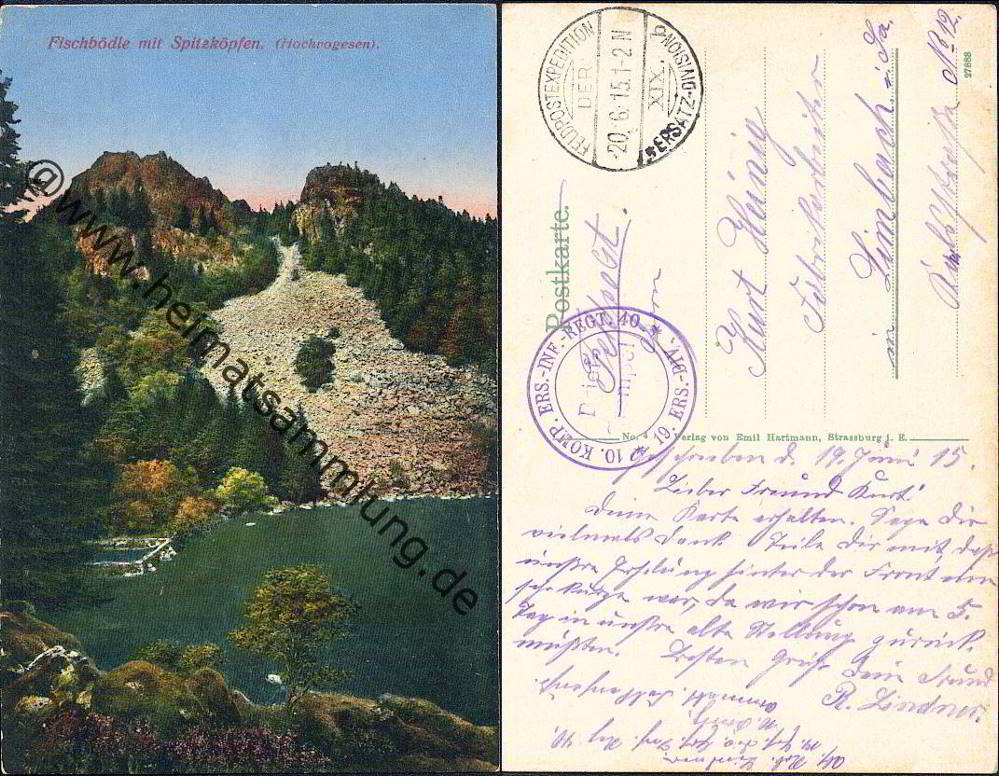 Fischbödle mit Spitzköpfen. (Hochvogesen).
@www.heimatsammlung.de
FELDPOSTEXPEDITION
DER
20.6.15.1-2N
XIX.
*ERSATZ-DIVISION b
Postkarte.
10. KOMP. ERS.-INF.-REGT. 40
* 19. ERS.-DIV. *
Kurt Heinig
Fabrikarbeiter
in Limbach i. Sa.
No. 12.
27888
Verlag von Emil Hartmann, Strassburg i. E.
Geschrieben d. 19. Juni 15.
Lieber Freund Kurt!
Deine Karte erhalten. Sage Dir
vielmals Dank. Teile Dir mit, daß
unsre Erholung hinter der Front nur
sehr kurz war, da wir schon am 5.
Tag in unsre alte Stellung zurück
mußten. Besten Gruß Dein Freund
R. Lindner.